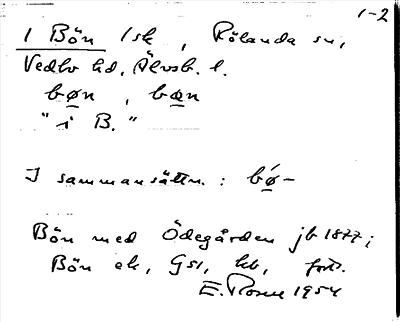 1-2
1 Bön 1sk, Rölanda sn,
Vedbo hd, Älvsb. l.
bøn, bæn
"i B."
I sammansättn.: bǿ-
Bön med Ödegården jb 1877;
Bön ek, GSI, hb,
E. Rosen 1954